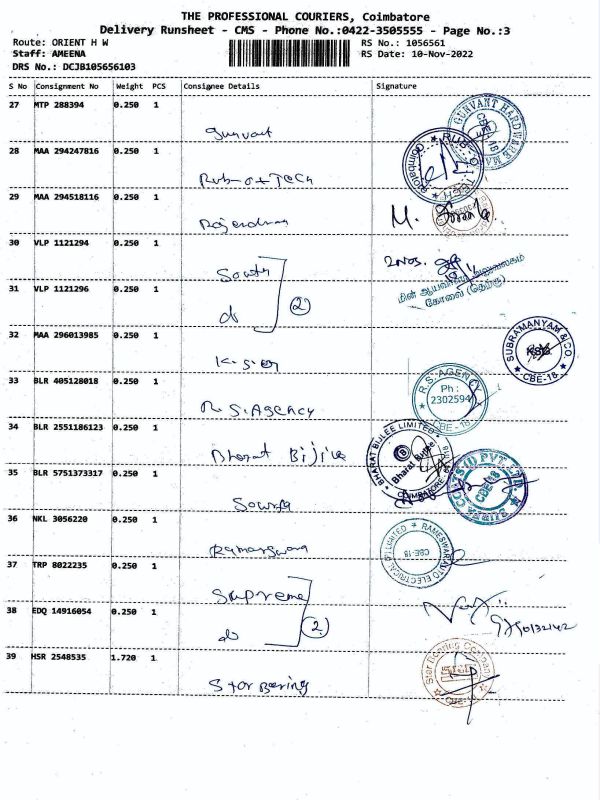 THE PROFESSIONAL COURIERS, Coimbatore
Delivery Runsheet - CMS - Phone No.:0422-3505555 - Page No.:3
Route: ORIENT H W
RS No.: 1056561
Staff: AMEENA
RS Date: 10-Nov-2022
DRS No.: DCJB105656103
S No Consignment No Weight PCS Consignee Details Signature
27 MTP 288394 0.250 1
Gunvant
GUNVANT HARDWARE MA
CBE-18
28 MAA 294247816 0.250 1
Rub-o-Tech
RUB-O-TECH
Coimbatore
29 MAA 294518116 0.250 1
Rajendran
M.
30 VLP 1121294 0.250 1
South
2 Nos.
31 VLP 1121296 0.250 1
do
2
மின் ஆய்வாளர் அலுவலகம்
கோவை (தெற்கு)
32 MAA 296013985 0.250 1
SUBRAMANYAM & CO.
CBE-18
33 BLR 405128018 0.250 1
R.S.Agency
R.S. AGENCY
Ph :
2302594
CBE-18
34 BLR 2551186123 0.250 1
Bharat Bijlee
BHARAT BIJLEE LIMITED
Bharat Bijlee
COIMBATORE
35 BLR 5751373317 0.250 1
(I) PVT. LTD.
CBE-18
36 NKL 3056220 0.250 1
ELECTRICAL
LIMITED
CBE-18
37 TRP 8022235 0.250 1
Supreme
38 EDQ 14916054 0.250 1
do
2
39 HSR 2548535 1.720 1
Star Bering
Star Bearing Company